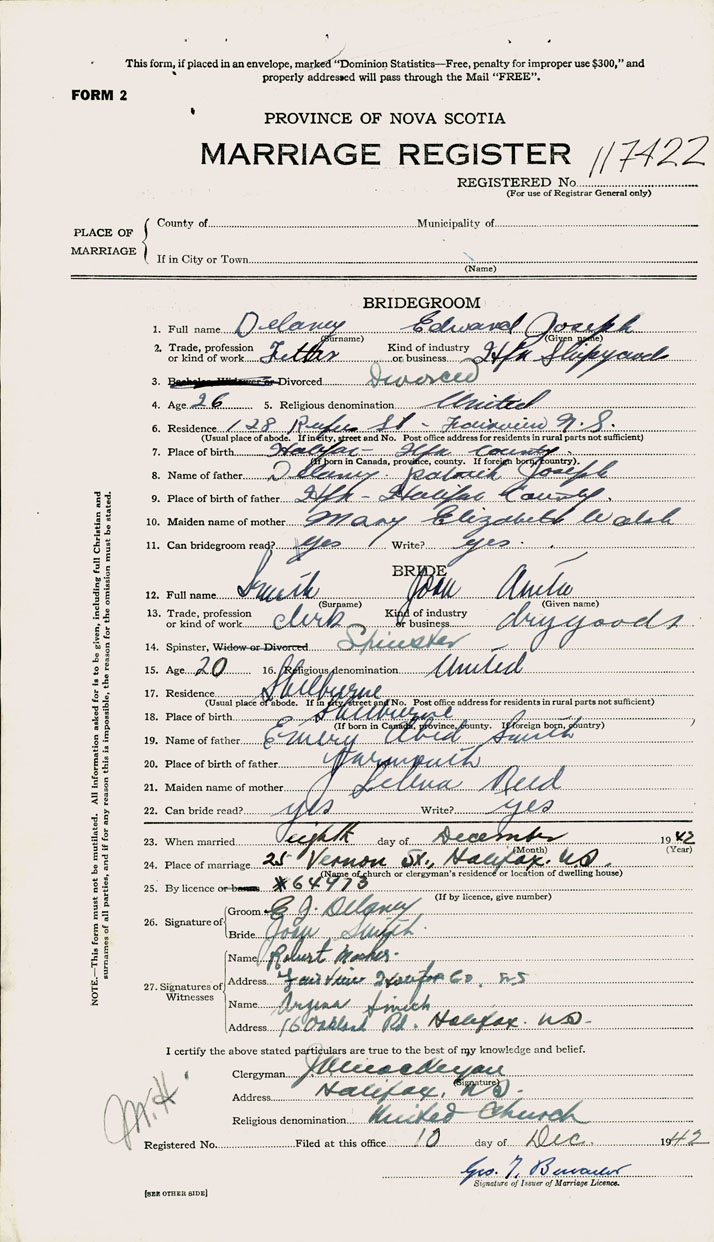 This form, if placed in an envelope, marked "Dominion Statistics—Free, penalty for improper use $300," and
properly addressed will pass through the Mail "FREE".
FORM 2
PROVINCE OF NOVA SCOTIA
MARRIAGE REGISTER 117422
REGISTERED No.
(For use of Registrar General only)
PLACE OF MARRIAGE
County of Municipality of
If in City or Town
(Name)
BRIDEGROOM
1. Full name Delaney Edward Joseph
(Surname) (Given name)
2. Trade, profession or kind of work Fitter Kind of industry or business Hfx Shipyards
3. Bachelor Widower or Divorced Divorced
4. Age 26 5. Religious denomination United
6. Residence 128 Rufus St - Fairview N.S.
(Usual place of abode. If in city, street and No. Post office address for residents in rural parts not sufficient)
7. Place of birth Halifax - Hfx County.
(If born in Canada, province, county. If foreign born, country).
8. Name of father Delaney Patrick Joseph
9. Place of birth of father Hfx - Halifax County.
10. Maiden name of mother Mary Elizabeth Walsh
11. Can bridegroom read? yes Write? yes.
BRIDE
12. Full name Smith Joan Anita
(Surname) (Given name)
13. Trade, profession or kind of work clerk Kind of industry or business dry goods
14. Spinster, Widow or Divorced Spinster
15. Age 20 16. Religious denomination United
17. Residence Shelburne
(Usual place of abode. If in city, street and No. Post office address for residents in rural parts not sufficient)
18. Place of birth Shelburne
(If born in Canada, province, county. If foreign born, country)
19. Name of father Emery Smith
20. Place of birth of father Yarmouth
21. Maiden name of mother Reid
22. Can bride read? yes Write? yes
23. When married eighth day of December 1942
(Month) (Year)
24. Place of marriage 25 Vernon St., Halifax. N.S.
(Name of church or clergyman's residence or location of dwelling house)
25. By licence or banns #64973
(If by licence, give number)
26. Signature of
Groom E J. Delaney
Bride Joan Smith.
27. Signatures of Witnesses
Name Robert Mosher.
Address Fairview Halifax Co. N.S
Name Smith
Address 16 Oakland Rd. Halifax. N.S.
I certify the above stated particulars are true to the best of my knowledge and belief.
Clergyman
(Signature)
Address Halifax, N.S.
Religious denomination United Church
Registered No. Filed at this office 10 day of Dec. 1942
Geo. T.
Signature of Issuer of Marriage Licence.
[SEE OTHER SIDE]
NOTE.—This form must not be mutilated. All information asked for is to be given, including full Christian and
surnames of all parties, and if for any reason this is impossible, the reason for the omission must be stated.